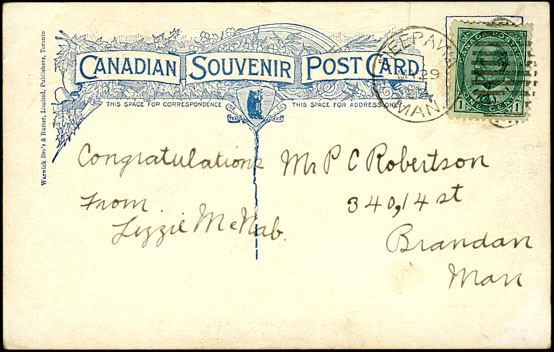 CANADIAN SOUVENIR POST CARD
THIS SPACE FOR CORRESPONDENCE
THIS SPACE FOR ADDRESS ONLY
Warwick Bro's & Rutter, Limited, Publishers, Toronto
NEEPAWA
29
MAN.
1 1
Congratulations
From
Lizzie McNab.
Mr P C Robertson
340, 14 st
Brandan
Man